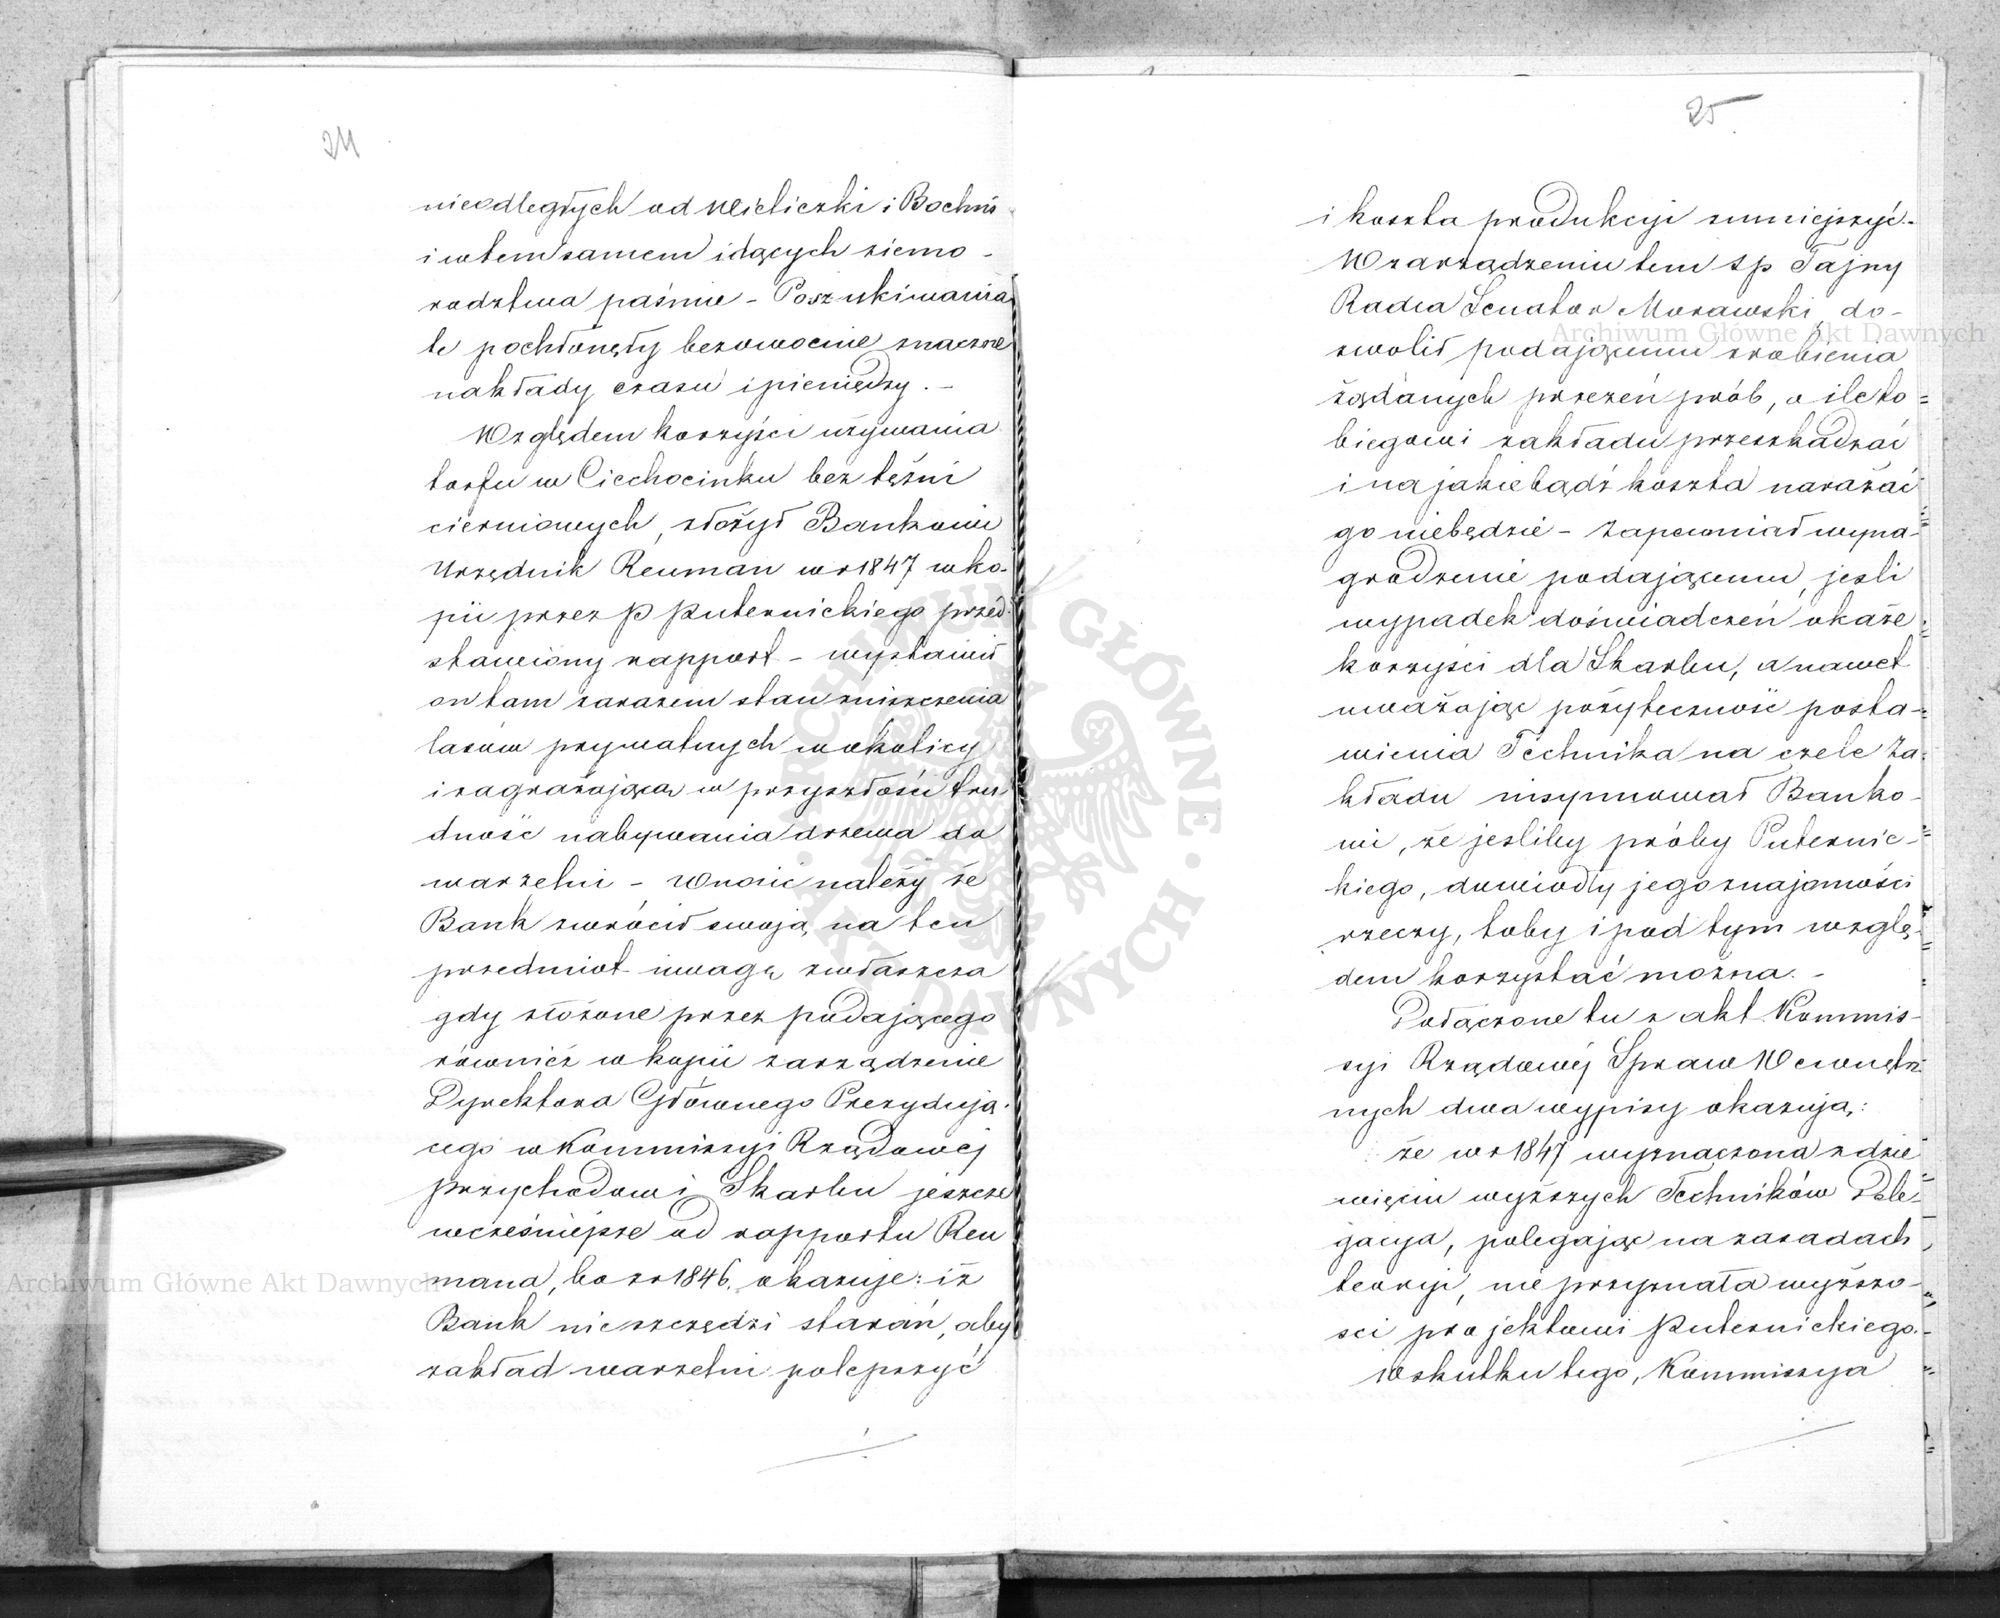 24
nieodległych od Wieliczki i Bochni
i w tem samem idących ziemo-
rodztwa paśmie - Poszukiwania
te pochłonęły bezowocnie znaczne
nakłady czasu i pieniędzy. -
Względem korzyści używania
torfu w Ciechocinku bez tężni
cierniowych, złożył Bankowi
Urzędnik Reuman w r 1847 w ko-
pii przez P Puternickiego przed-
stawiony rapport - wystawił
on tam zarazem stan zniszczenia
lasów prywatnych w okolicy
i zagrażającą w przyszłości tru
dność nabywania drzewa do
warzelni - Wnosić należy że
Bank zwrócił swoją na ten
przedmiot uwagę zwłaszcza
gdy złożone przez podającego
również w kopii zarządzenie
Dyrektora Głównego Prezydują-
cego w Kommissyi Rządowej
Przychodów i Skarbu jeszcze
wcześniejsze od rapportu Reu
mana, bo z r 1846. okazuje: iż
Bank nieszczędzi starań, aby
zakład warzelni polepszyć
25
i koszta produkcyi zmniejszyć.-
W zarządzeniu tem Sp Tajny
Radca Senator Morawski, do-
zwolił podającemu zrobienia
żądanych przezeń prób, o ile to=
biegowi zakładu przeszkadzać
i na jakiebądź koszta narażać
go niebędzie - Zapewniał wyna-
grodzenie podającemu, jesli
wypadek doświadczeń okaże
korzyści dla Skarbu, a nawet
uważając pożyteczność posta-
wienia Technika na czele Za-
kładu insynuował Banko-
wi, że jesliby próby Puternic-
kiego, dowiodły jego znajomości
rzeczy, toby i pod tym wzglę-
dem korzystać można. -
Dołączone tu z akt Kommis-
syi Rządowej Spraw Wewnętrz
nych dwa wypisy okazują:
że w r 1847 wyznaczona z dzie
więciu wyższych Techników Dele-
gacya, polegając na zasadach
teoryi, nie przyznała wyższo-
sci projektowi Puternickiego.-
W skutku tego, Kommissya
Archiwum Główne Akt Dawnych
Archiwum Główne Akt Dawnych
ARCHIWUM GŁÓWNE AKT DAWNYCH